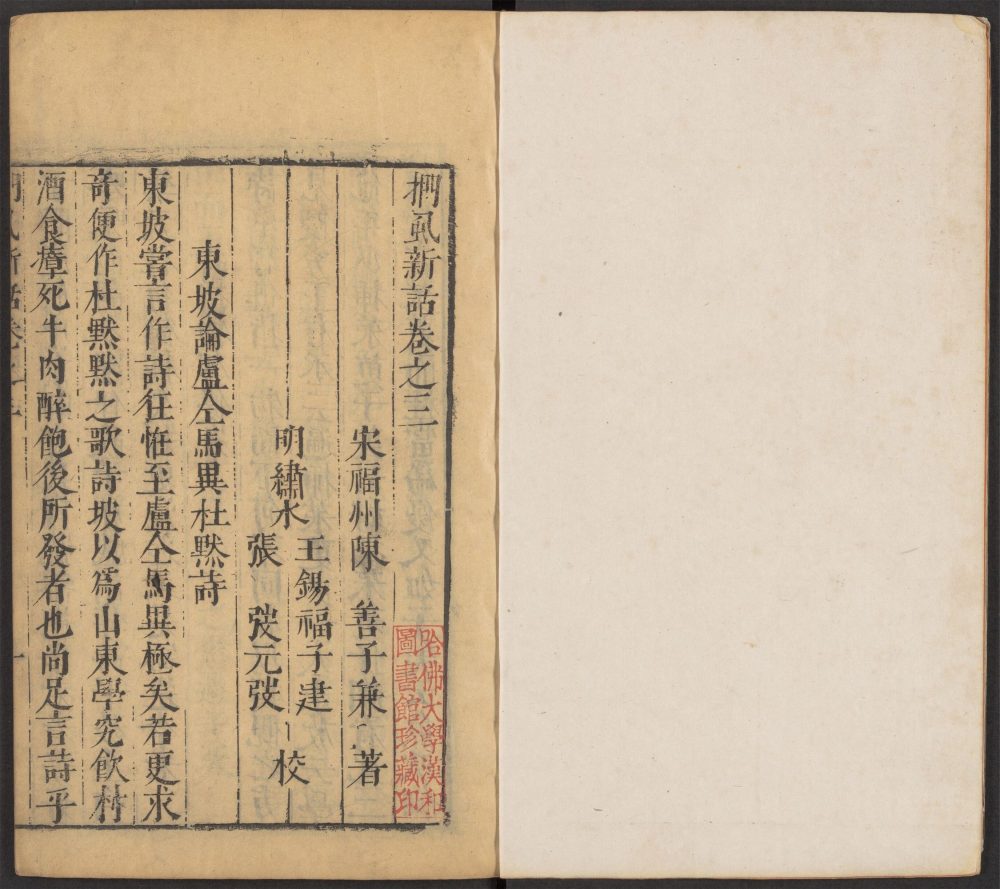 捫虱新話卷之三
宋福州陳 善子兼 著
明繡水 王錫福子建 校
張 弢元弢
東坡論盧仝馬異杜黙詩
東坡嘗言作詩狂恠至盧仝馬異極矣若更求
奇便作杜黙黙之歌詩坡以爲山東學究飲村
酒食瘴死牛肉醉飽後所發者也尚足言詩乎
哈佛大學漢和
圖書館珍藏印